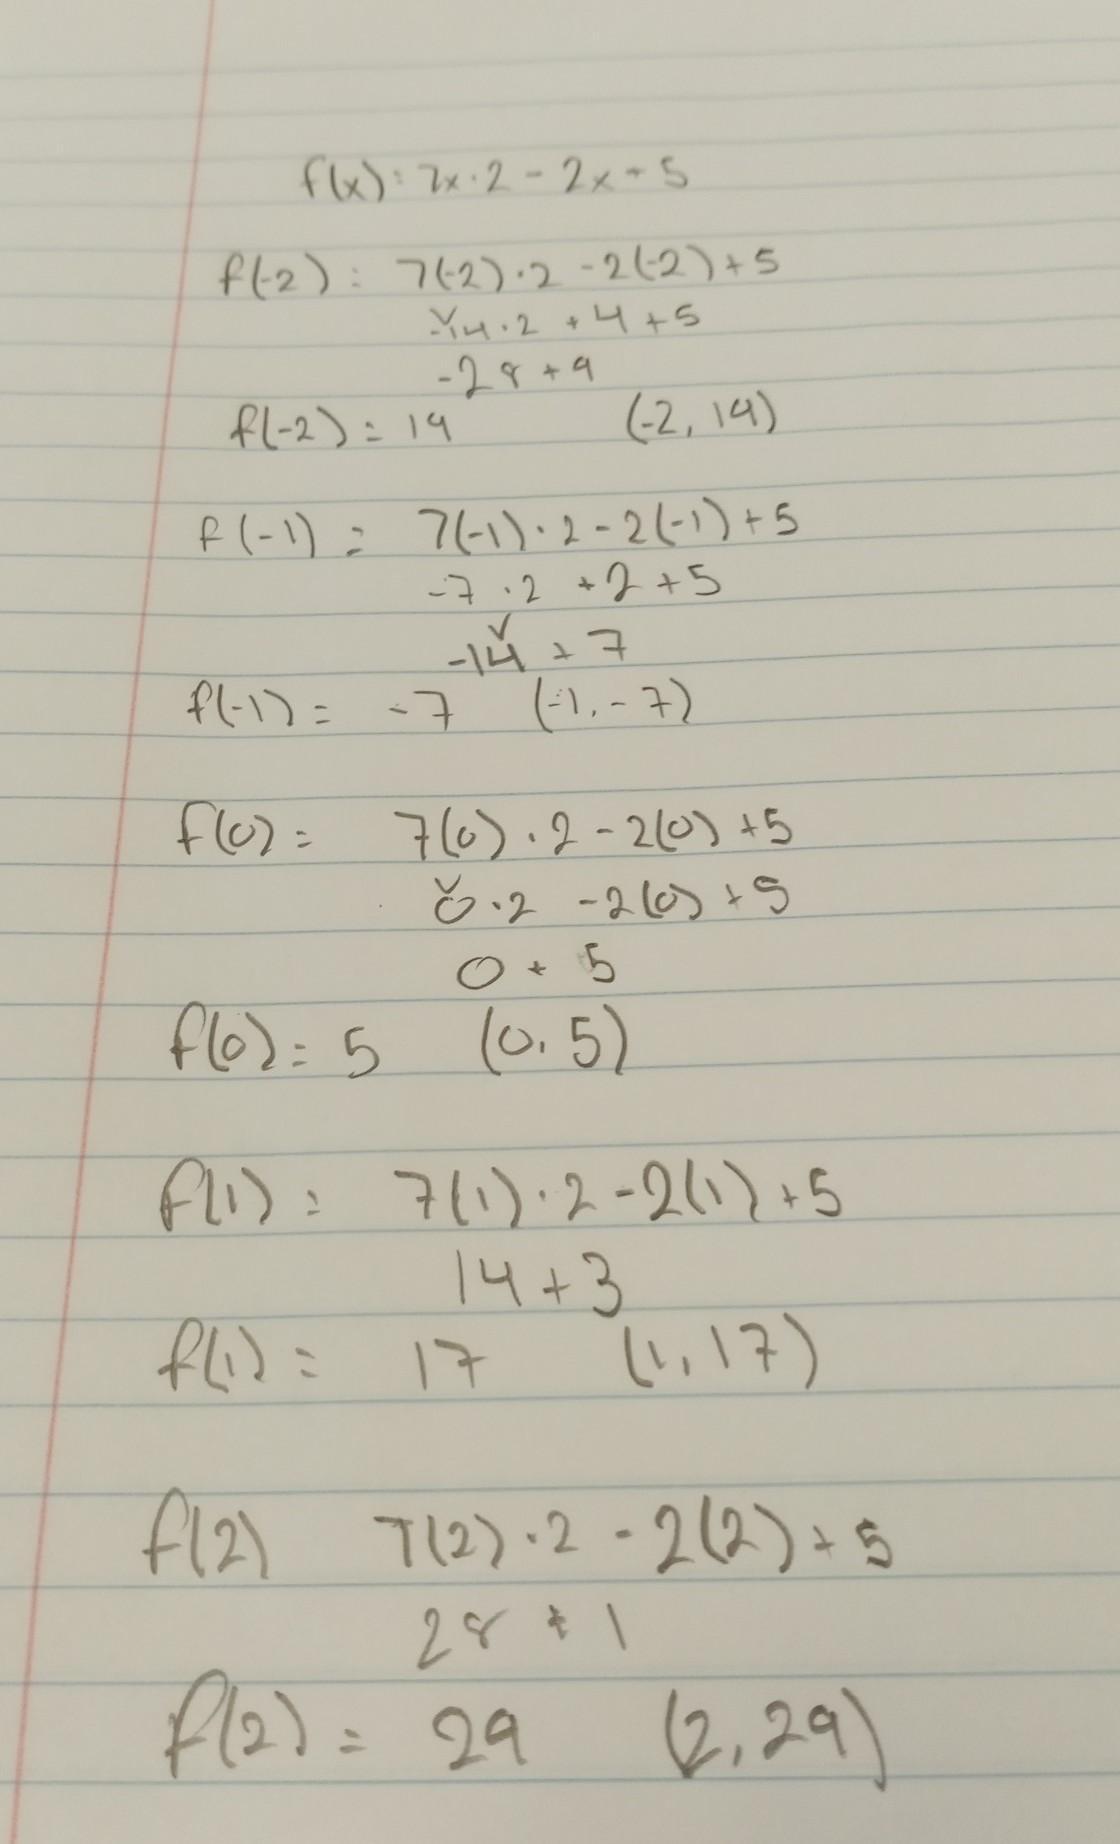 f(x): 7x·2 - 2x + 5
f(-2): 7(-2)·2 -2(-2)+5
-14·2 +4+5
-28+9
f(-2)= 19 (-2, 19)
f(-1) = 7(-1)·2-2(-1)+5
-7·2 +2+5
-14 + 7
f(-1)= -7 (-1,-7)
f(0)= 7(0)·2-2(0)+5
0·2 -2(0)+5
0 + 5
f(0)= 5 (0,5)
f(1)= 7(1)·2-2(1)+5
14+3
f(1)= 17 (1,17)
f(2) 7(2)·2 -2(2)+5
28 + 1
f(2)= 29 (2,29)